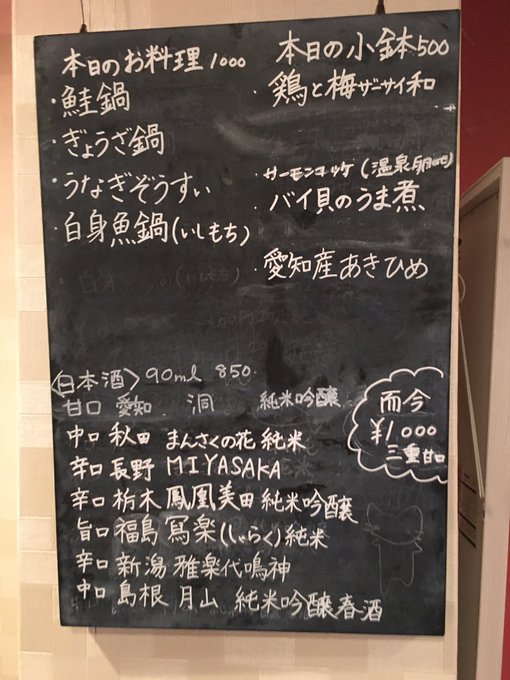 本日のお料理 1000
・鮭鍋
・ぎょうざ鍋
・うなぎぞうすい
・白身魚鍋(いしもち)
本日の小鉢500
・鶏と梅ザーサイ和
・サーモンユッケ(温泉卵のせ)
・バイ貝のうま煮
・愛知産あきひめ
<日本酒> 90ml 850.
甘口 愛知 洞 純米吟醸
中口 秋田 まんさくの花 純米
辛口 長野 MIYASAKA
辛口 栃木 鳳凰美田 純米吟醸
旨口 福島 寫楽(しゃらく)純米
辛口 新潟 雅楽代鳴神
中口 島根 月山 純米吟醸春酒
而今
¥1000
三重甘口